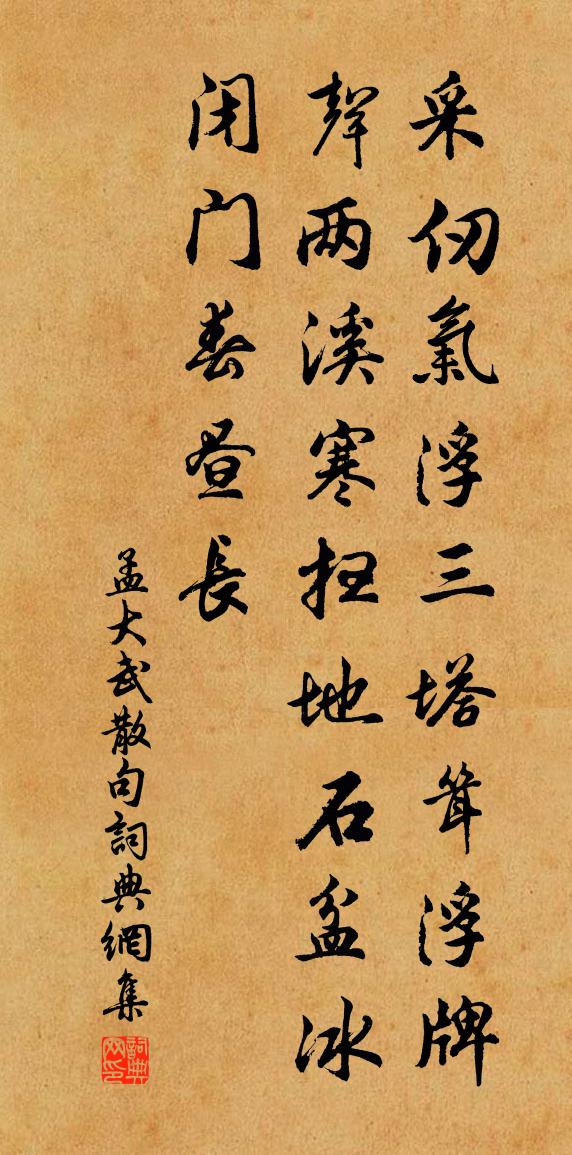 采仞氣浮三塔耸浮牌
聲两溪寒扫地石盆冰
闭门春昼長
孟大武散句詞典網集
詞典网印